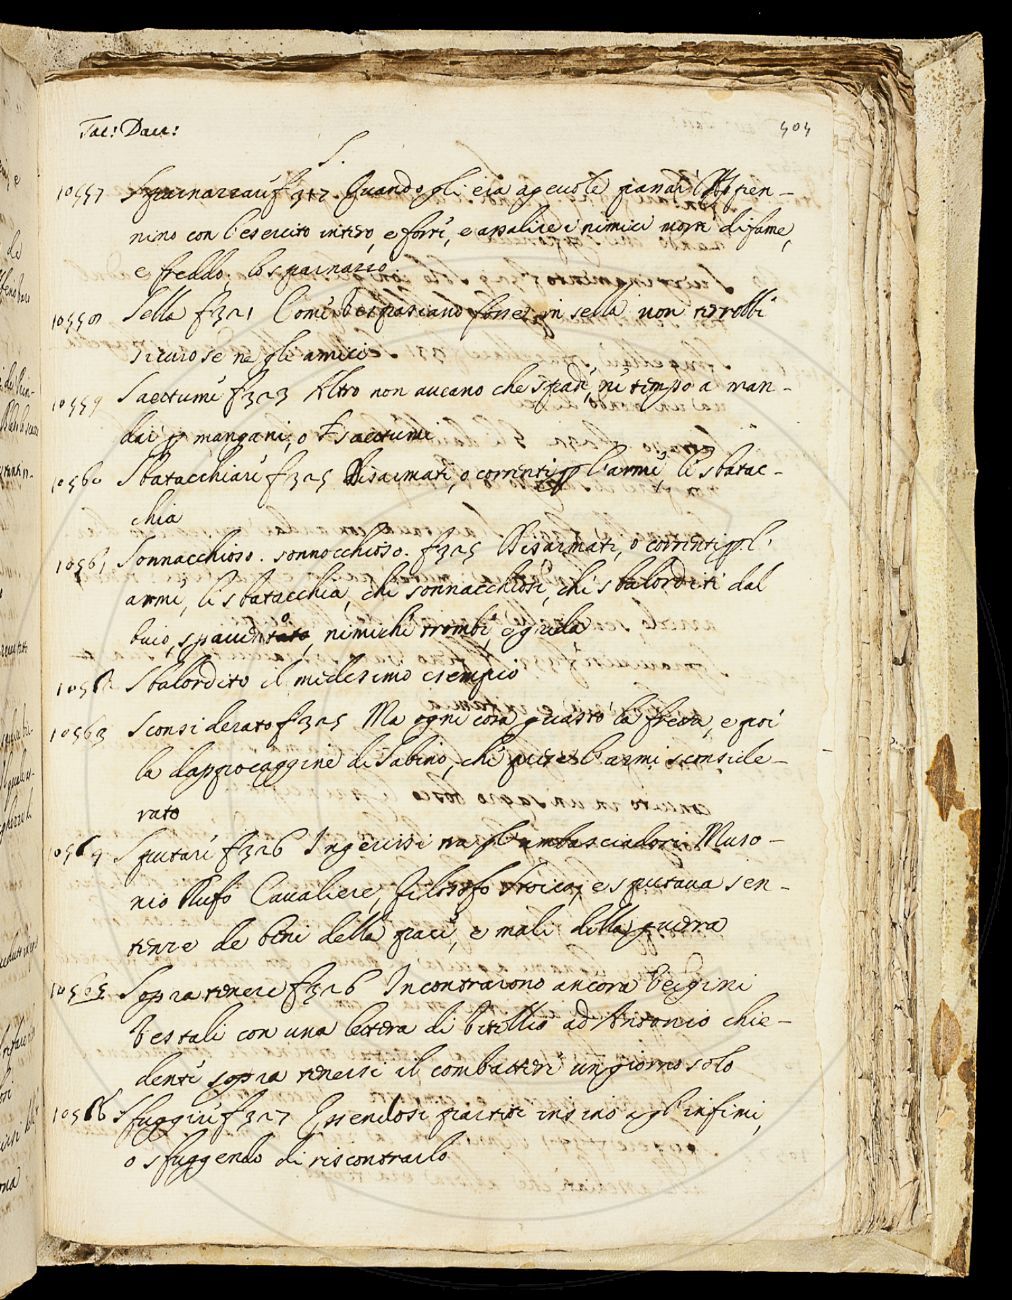 Tac: Dav:
505
S.
10557 Sparnazzare f 317. Quando gli era agevole passar l'Appen-
nino con l'esercito intero, e forte, e assalire i nimici morti di fame,
e freddo, lo sparnazzò
10558 Sella f 321 Come Vespasiano fosse in sella non terrebbe
sicuro se ne gli amici
10559 Saettume f 323 Altro non aveano che spade, nè tempo a man-
dar p mangani, o saettume
10560 Sbatacchiare f 325 Disarmati, o correnti p l'armi, li sbatac-
chia
10561 Sonnacchioso. sonnocchioso. f 325 Disarmati, o correnti p l'
armi, li sbatacchia, chi sonnacchiosi, chi sbalorditi dal
buio, spavento, nimichi trombe, e grida
10562 Sbalordito il medesimo esempio
10563 Sconsiderato f 325 Ma ogni cosa guastò la fretta, e poi
la dappocaggine di Sabino, che prese l'armi sconside-
rato
10564 Sputare f 326 Ingerissi tra gl'ambasciadori Muso-
nio Rufo Cavaliere, filosofo stoico, e sputava sen-
tenze de beni della pace, e mali della guerra
10565 Sopra tenere f 326 Incontrarono ancora Vergini
Vestali con una lettera di Vitellio ad Antonio chie-
dente sopra tenersi il combattere un giorno solo
10566 Sfuggire f 327 Essendosi partiti insino agl'infimi,
o sfuggendo di riscontrarlo